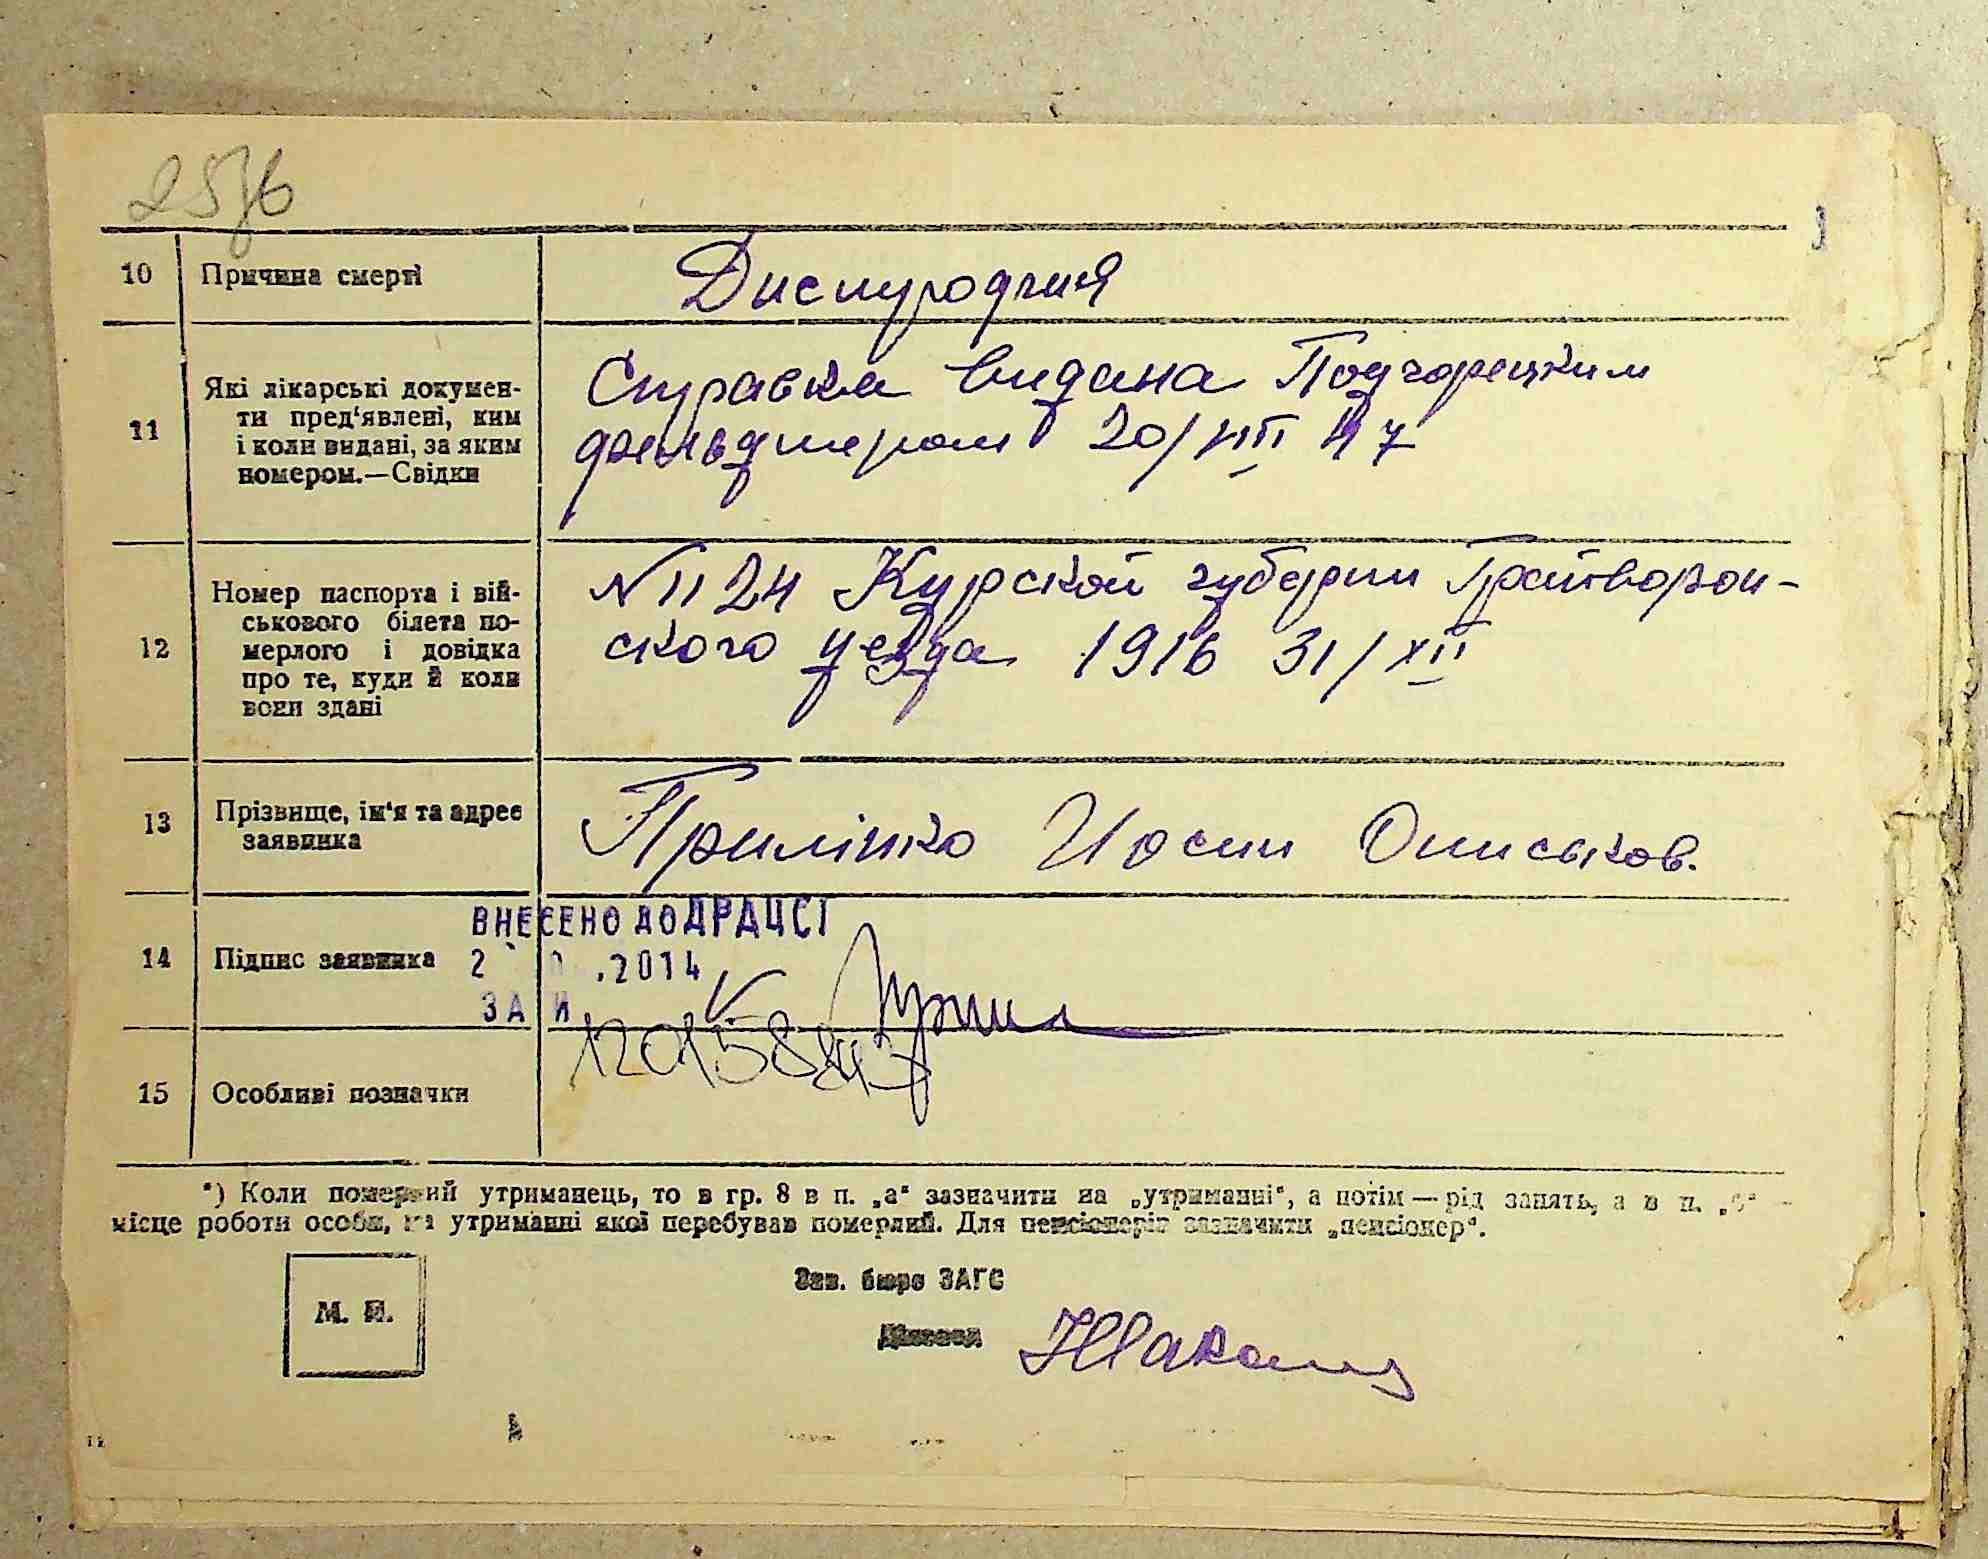 2576
10 Причина смерті Диспродгия
11 Які лікарські докумен-
ти пред'явлені, ким
і коли видані, за яким
номером.—Свідки
Справка видана Подгорецким
фельдшером 20/VIII 47
12 Номер паспорта і вій-
ськового білета по-
мерлого і довідка
про те, куди й коли
вони здані
N 1124 Курской губерни Грайворон-
ского уезда 1916 31/XII
13 Прізвище, ім'я та адрес
заявника
Приліпко Иосип Описьков.
ВНЕСЕНО ДО ДРАЦСГ
14 Підпис заявника
2 .2014
ЗА И
15 Особливі позначки
*) Коли померлий утриманець, то в гр. 8 в п. „а“ зазначити на „утриманні“, а потім — рід занять, а в п. „б“ —
місце роботи особи, на утриманні якої перебував померлий. Для пенсіонерів зазначити „пенсіонер“.
Зав. бюро ЗАГС
М. П.
Діловод